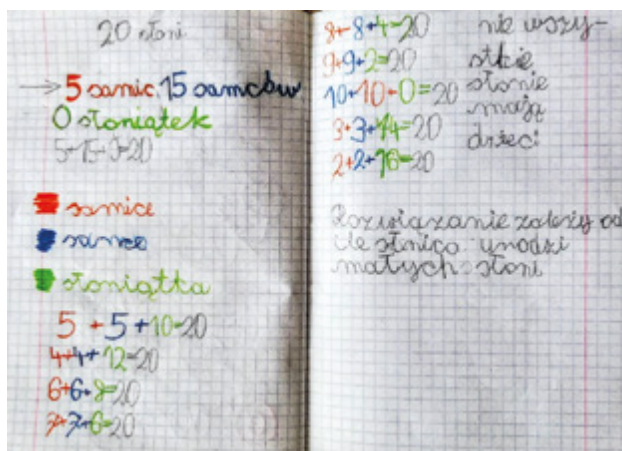 20 słoni
→ 5 samic, 15 samców
0 słoniątek
5+15+0=20
samice
samce
słoniątka
5 + 5 + 10=20
4+4+12=20
6+6+8=20
7+7+6=20
8+8+4=20
9+9+2=20
10+10+0=20
3+3+14=20
2+2+16=20
nie wszy-
stkie
słonie
mają
dzieci
Rozwiązanie zależy od
ile słnica urodzi
małych słoni